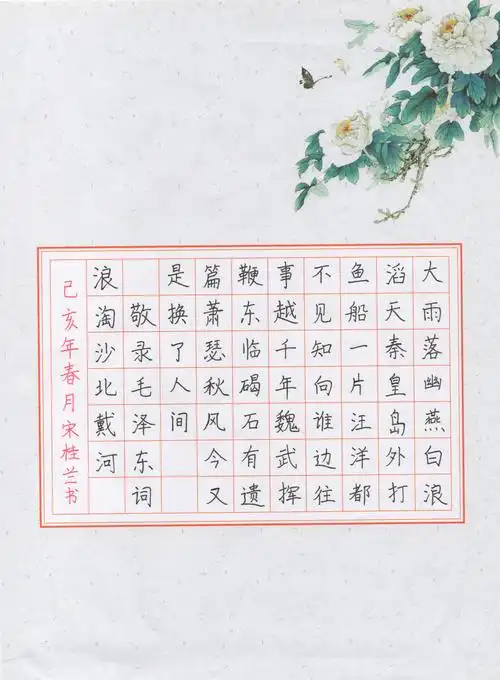 大雨落幽燕白浪
滔天秦皇岛外打
鱼船一片汪洋都
不见知向谁边往
事越千年魏武挥
鞭东临碣石有遗
篇萧瑟秋风今又
是换了人间
敬录毛泽东词
浪淘沙北戴河
己亥年春月宋桂兰书